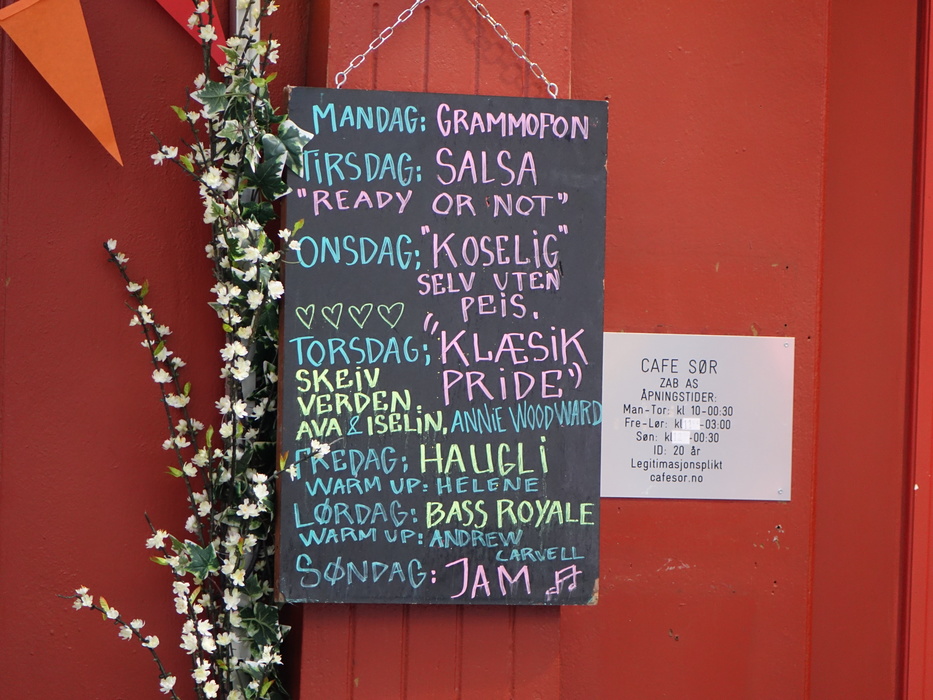 MANDAG: GRAMMOFON
TIRSDAG: SALSA
"READY OR NOT"
ONSDAG: "KOSELIG"
SELV UTEN
PEIS.
♡♡♡♡
TORSDAG: "KLÆSIK
PRIDE"
SKEIV
VERDEN.
AVA & ISELIN, ANNIE WOODWARD
FREDAG: HAUGLI
WARM UP: HELENE
LØRDAG: BASS ROYALE
WARM UP: ANDREW
CARVELL
SØNDAG: JAM ♫
CAFE SØR
ZAB AS
ÅPNINGSTIDER:
Man-Tor: kl 10-00:30
Fre-Lør: kl -03:00
Søn: kl -00:30
ID: 20 år
Legitimasjonsplikt
cafesor.no